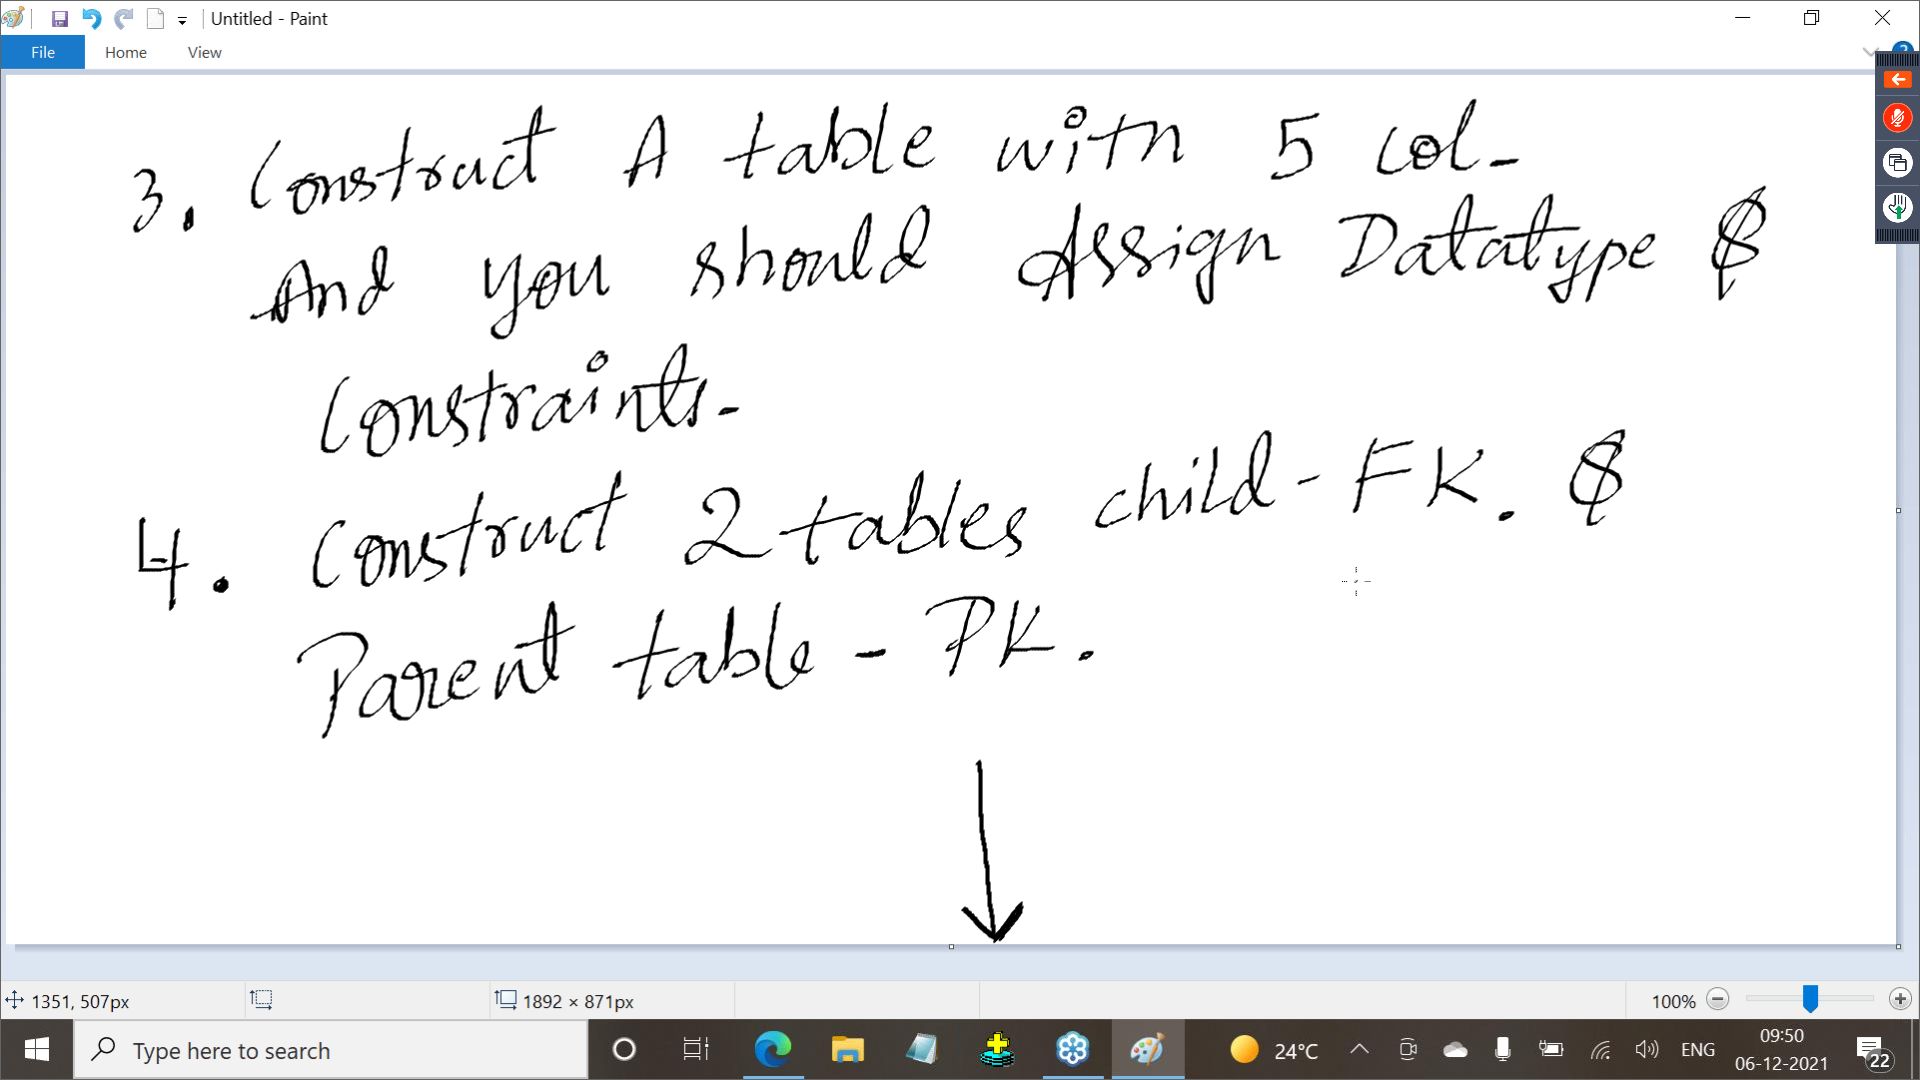 Untitled - Paint
File Home View
3. Construct A table with 5 col-
And you should Assign Datatype &
Constraints.
4. Construct 2 tables child - FK. &
Parent table - PK.
1351, 507px
1892 × 871px
100%
Type here to search
24°C
ENG
09:50
06-12-2021
22